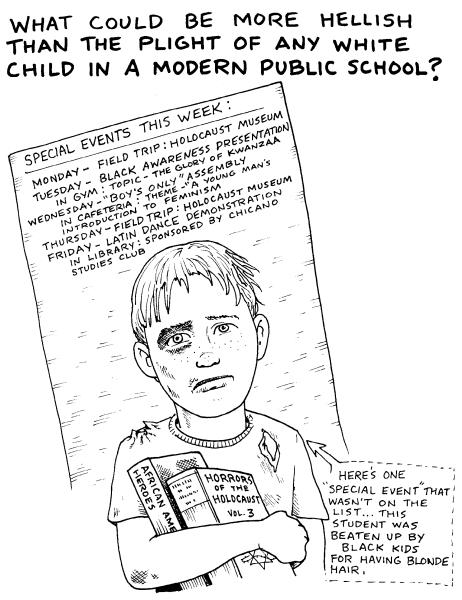 WHAT COULD BE MORE HELLISH
THAN THE PLIGHT OF ANY WHITE
CHILD IN A MODERN PUBLIC SCHOOL?
SPECIAL EVENTS THIS WEEK:
MONDAY - FIELD TRIP: HOLOCAUST MUSEUM
TUESDAY - BLACK AWARENESS PRESENTATION
IN GYM: TOPIC - THE GLORY OF KWANZAA
WEDNESDAY - "BOY'S ONLY" ASSEMBLY
IN CAFETERIA: THEME - "A YOUNG MAN'S
INTRODUCTION TO FEMINISM
THURSDAY - FIELD TRIP: HOLOCAUST MUSEUM
FRIDAY - LATIN DANCE DEMONSTRATION
IN LIBRARY: SPONSORED BY CHICANO
STUDIES CLUB
AFRICAN AME
HEROES
HORRORS
OF THE
HOLOCAUST
VOL. 3
HERE'S ONE
"SPECIAL EVENT" THAT
WASN'T ON THE
LIST... THIS
STUDENT WAS
BEATEN UP BY
BLACK KIDS
FOR HAVING BLONDE
HAIR.